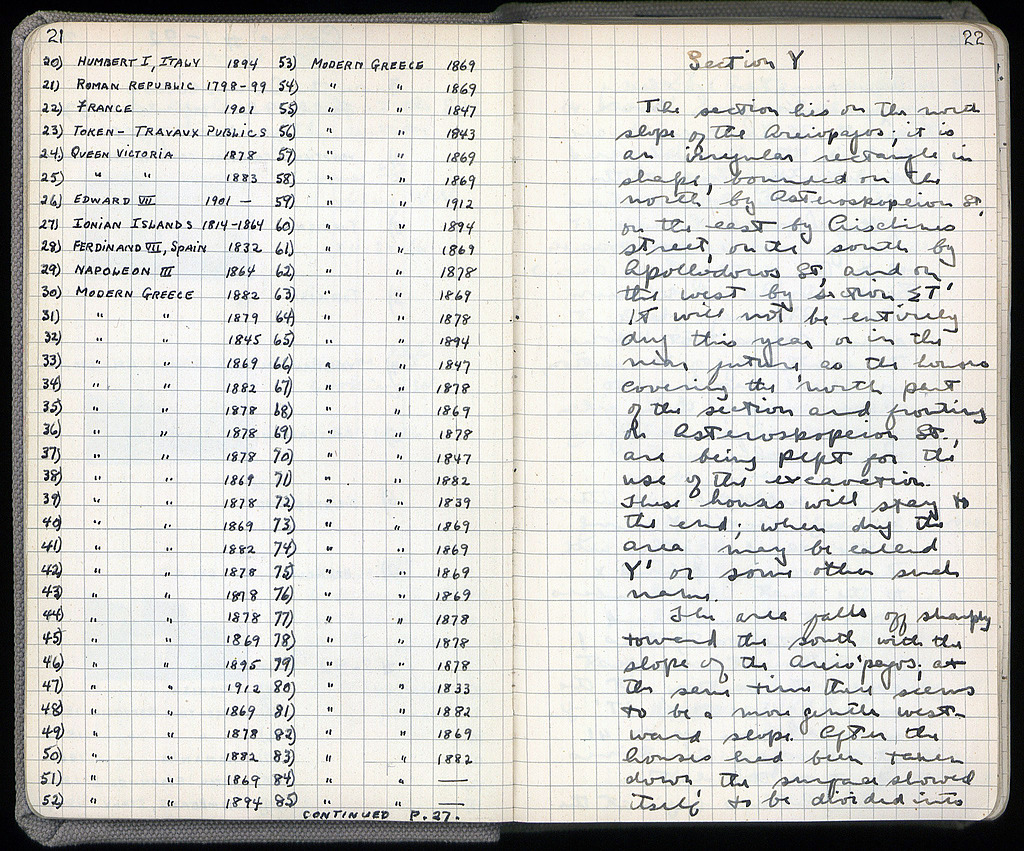 21
20) HUMBERT I, ITALY 1894 53) MODERN GREECE 1869
21) ROMAN REPUBLIC 1798-99 54) " " 1869
22) FRANCE 1901 55) " " 1847
23) TOKEN - TRAVAUX PUBLICS 56) " " 1843
24) QUEEN VICTORIA 1878 57) " " 1869
25) " " 1883 58) " " 1869
26) EDWARD VII 1901 — 59) " " 1912
27) IONIAN ISLANDS 1814-1864 60) " " 1894
28) FERDINAND VII, Spain 1832 61) " " 1869
29) NAPOLEON III 1864 62) " " 1878
30) MODERN GREECE 1882 63) " " 1869
31) " " 1879 64) " " 1878
32) " " 1845 65) " " 1894
33) " " 1869 66) " " 1847
34) " " 1882 67) " " 1878
35) " " 1878 68) " " 1869
36) " " 1878 69) " " 1878
37) " " 1878 70) " " 1847
38) " " 1869 71) " " 1882
39) " " 1878 72) " " 1839
40) " " 1869 73) " " 1869
41) " " 1882 74) " " 1869
42) " " 1878 75) " " 1869
43) " " 1878 76) " " 1869
44) " " 1878 77) " " 1878
45) " " 1869 78) " " 1878
46) " " 1895 79) " " 1878
47) " " 1912 80) " " 1833
48) " " 1869 81) " " 1882
49) " " 1878 82) " " 1869
50) " " 1882 83) " " 1882
51) " " 1869 84) " " —
52) " " 1894 85) " " —
CONTINUED P. 27.
22
Section Y
The section lies on the north
slope of the Areiopagos; it is
an irregular rectangle in
shape, bounded on the
north by Asteroskopeion St,
on the east by Aischines
street, on the south by
Apollodoros St, and on
the west by section ΣΤ'
It will not be entirely
dug this year or in the
near future, as the houses
covering the north part
of the section and fronting
on Asteroskopeion St.,
are being kept for the
use of the excavation.
These houses will stay to
the end; when dug the
area may be called
Y' or some other such
name.
The area falls off sharply
toward the south with the
slope of the Areiopagos; at
the same time there seems
to be a more gentle west-
ward slope. After the
houses had been taken
down, the surface showed
itself to be divided into